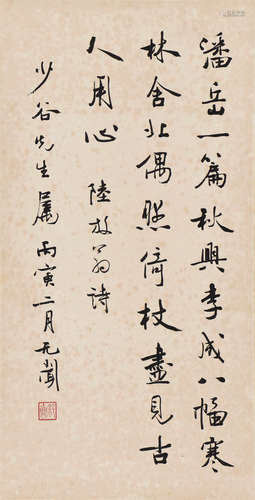 潘岳一篇秋興李成八幅寒
林舍北偶然倚杖盡見古
人用心 陸放翁詩
少谷先生屬 丙寅二月无聞